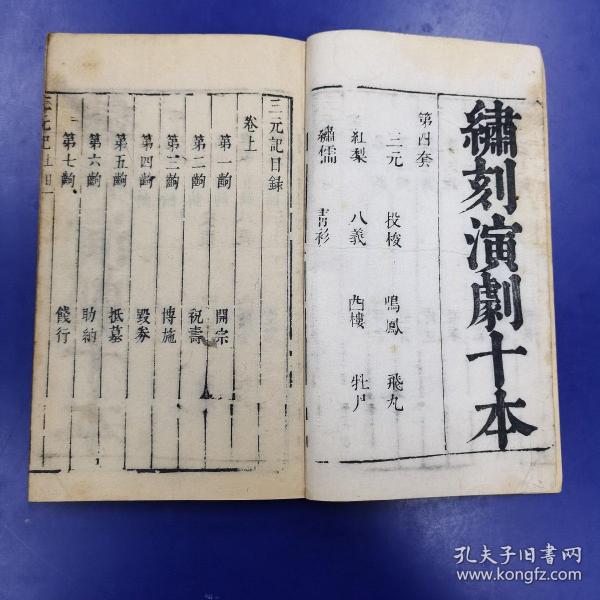 繡刻演劇十本
第四套
三元 投梭 鳴鳳 飛丸
紅梨 八義 西樓 牡尸
繡襦 靑衫
三元記目錄
卷上
第一齣 開宗
第二齣 祝壽
第三齣 博施
第四齣 毀券
第五齣 抵墓
第六齣 助納
第七齣 餞行
孔夫子旧书网
kongfz.com